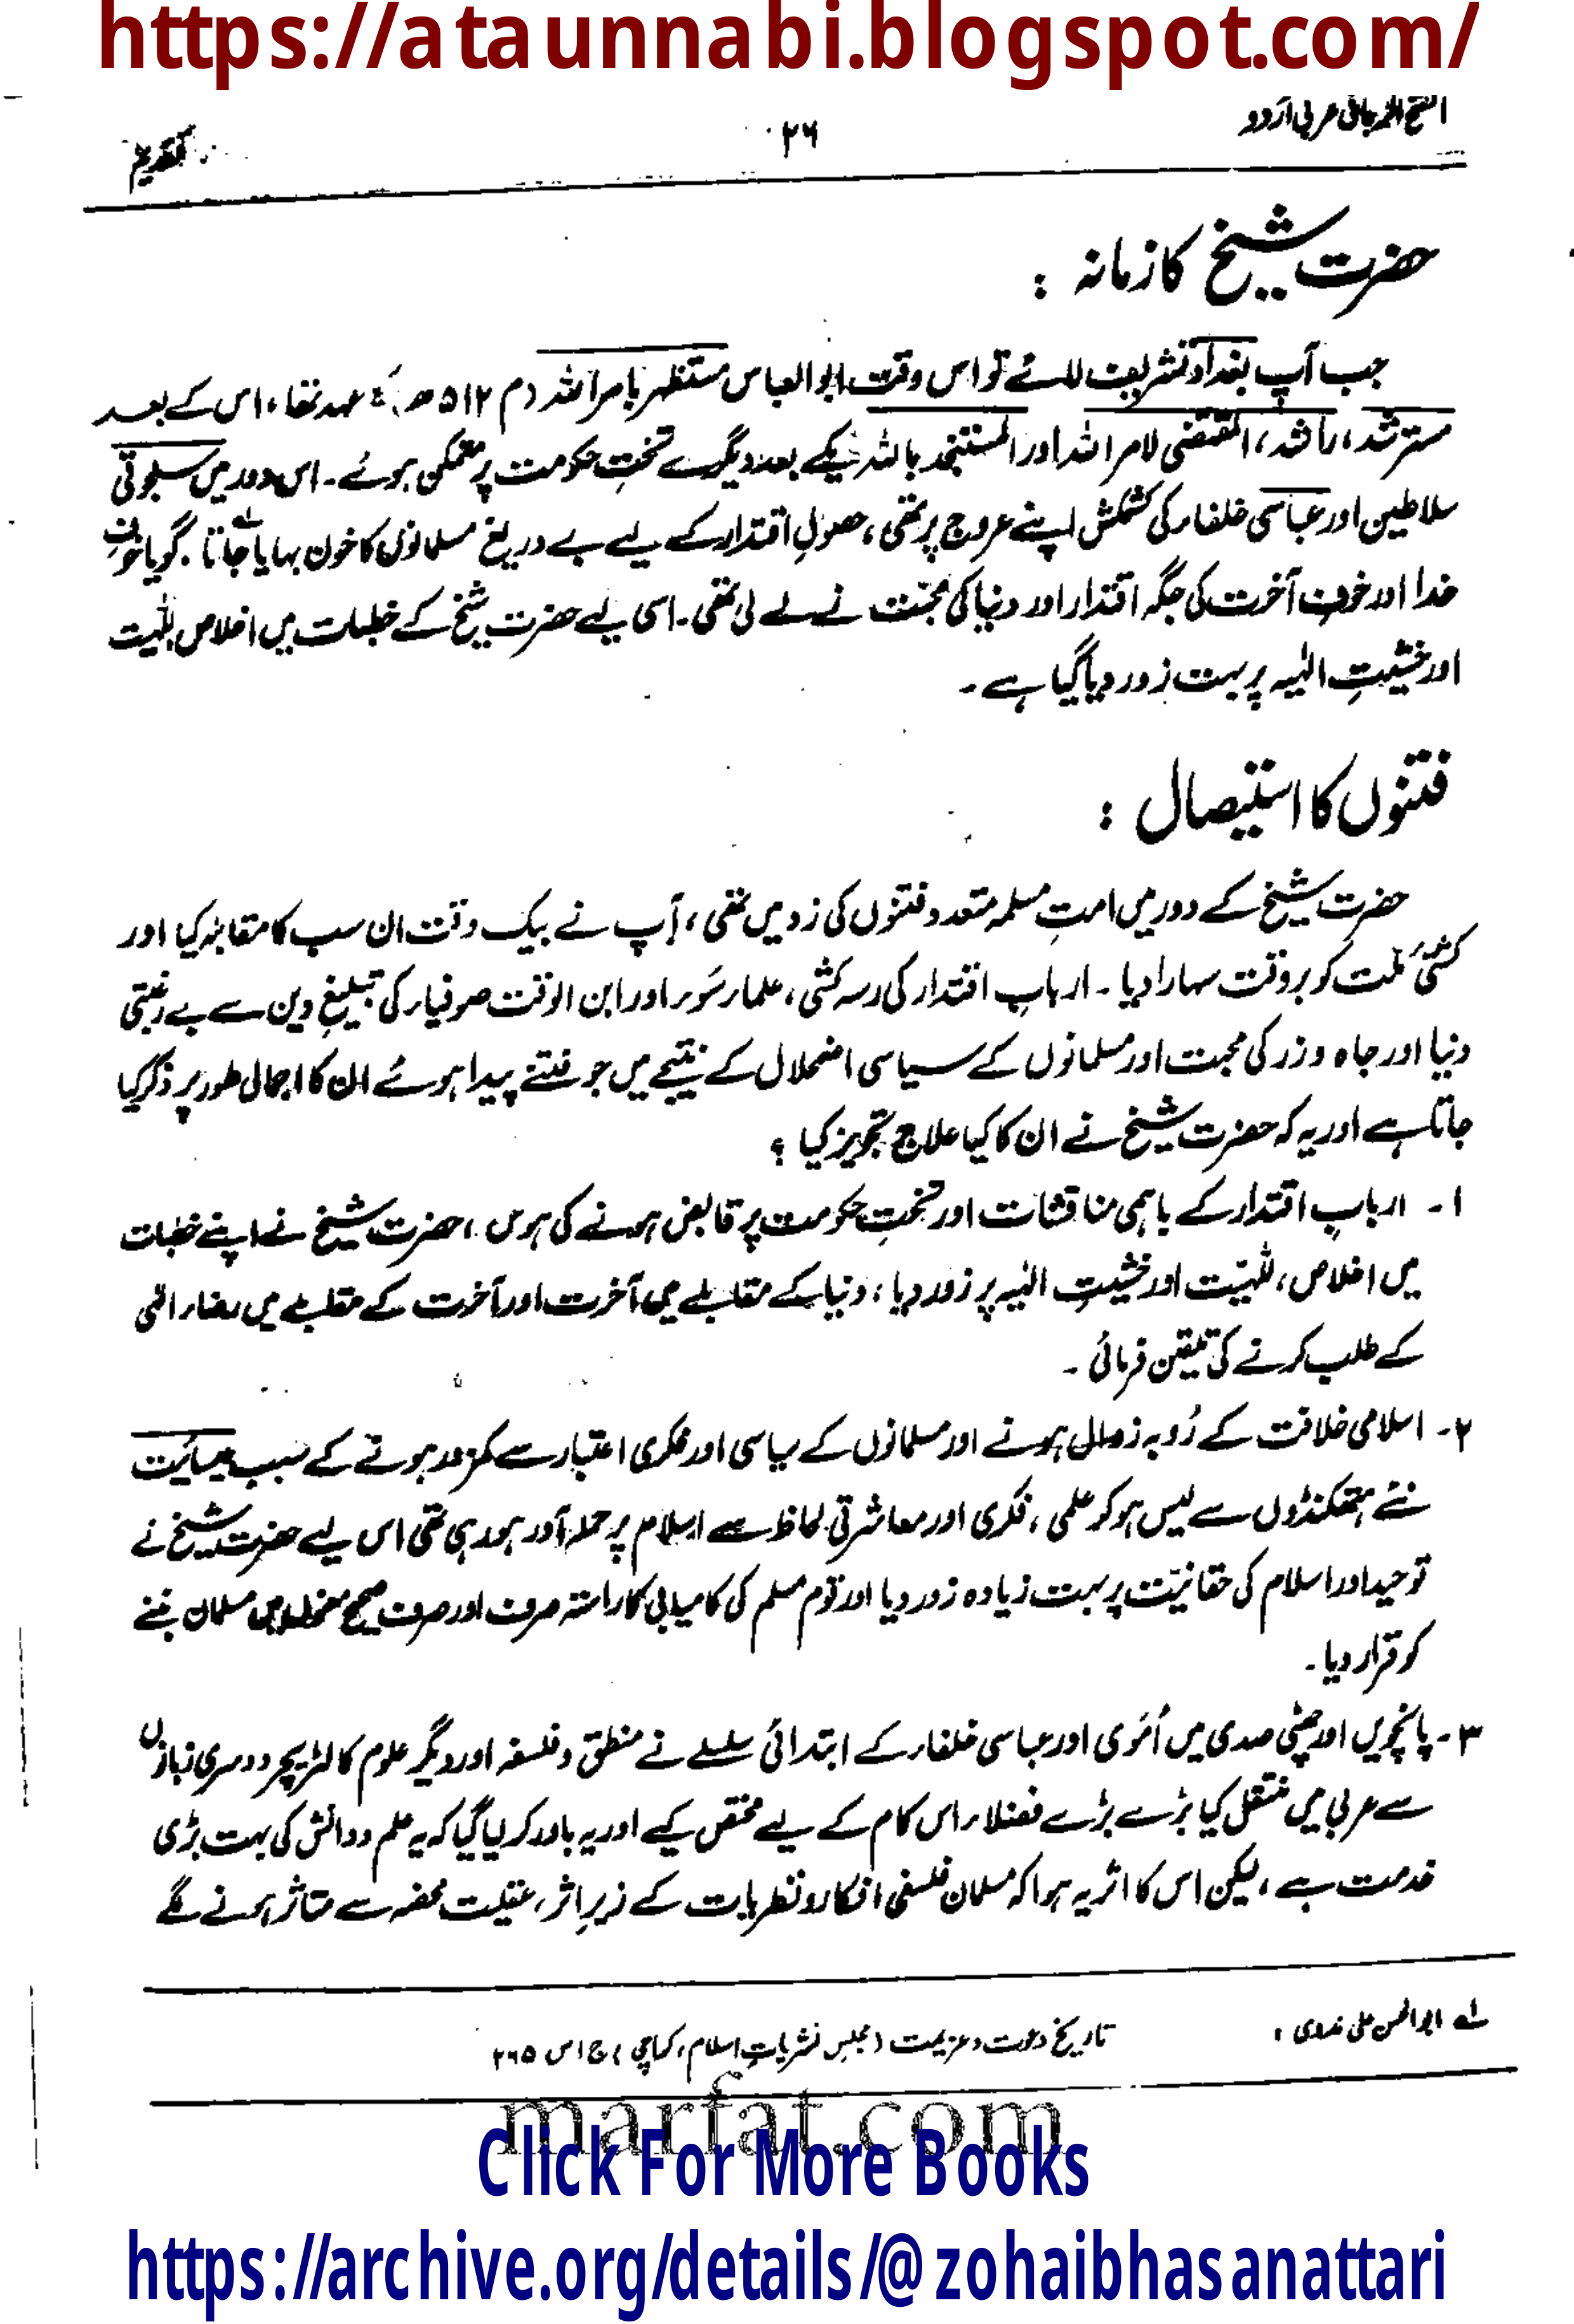 https://ataunnabi.blogspot.com/
الفتح الربانی عربی اردو
۲۶
تقدیم
حضرت شیخ کا زمانہ :
جب آپ بغداد تشریف لائے تو اس وقت ابوالعباس مستظہر بامر اللہ (م ۵۱۲ھ) کا عہد تھا، اس کے بعد
مسترشد، راشد، المقتضی لامر اللہ اور المستنجد باللہ یکے بعد دیگرے تختِ حکومت پر متمکن ہوئے۔ اس دور میں سلجوقی
سلاطین اور عباسی خلفاء کی کشمکش اپنے عروج پر تھی، حصولِ اقتدار کے لیے بے دریغ مسلمانوں کا خون بہایا جاتا۔ گویا خوفِ
خدا اور خوفِ آخرت کی جگہ اقتدار اور دنیا کی محبّت نے لے لی تھی۔ اسی لیے حضرت شیخ کے خطبات میں اخلاص، للہیت
اور خشیتِ الٰہیہ پر بہت زور دیا گیا ہے۔
فتنوں کا استیصال :
حضرت شیخ کے دور میں امتِ مسلمہ متعدد فتنوں کی زد میں تھی، آپ نے بیک وقت ان سب کا مقابلہ کیا اور
کشتیٔ ملت کو بروقت سہارا دیا۔ اربابِ اقتدار کی رسہ کشی، علماء سُوء اور ابن الوقت صوفیاء کی تبلیغِ دین سے بے رغبتی
دنیا اور جاہ و زر کی محبت اور مسلمانوں کے سیاسی اضمحلال کے نتیجے میں جو فتنے پیدا ہوئے ان کا اجمالی طور پر ذکر کیا
جاتا ہے اور یہ کہ حضرت شیخ نے ان کا کیا علاج تجویز کیا ؟
۱۔ اربابِ اقتدار کے باہمی مناقشات اور تختِ حکومت پر قابض ہونے کی ہوس، حضرت شیخ نے اپنے خطبات
میں اخلاص، للہیّت اور خشیتِ الٰہیہ پر زور دیا، دنیا کے مقابلے میں آخرت اور آخرت کے مقابلے میں رضاء الٰہی
کے طلب کرنے کی تلقین فرمائی۔
۲۔ اسلامی خلافت کے رُو بہ زوال ہونے اور مسلمانوں کے سیاسی اور فکری اعتبار سے کمزور ہونے کے سبب عیسائیت
نئے ہتھکنڈوں سے لیس ہو کر علمی، فکری اور معاشرتی لحاظ سے اسلام پر حملہ آور ہو رہی تھی اس لیے حضرت شیخ نے
توحید اور اسلام کی حقانیّت پر بہت زیادہ زور دیا اور قوم مسلم کی کامیابی کا راستہ صرف اور صرف صحیح معنوں میں مسلمان بننے
کو قرار دیا۔
۳۔ پانچویں اور چھٹی صدی میں اُمَوی اور عباسی خلفاء کے ابتدائی سلسلے نے منطق و فلسفہ اور دیگر علوم کا لٹریچر دوسری زبانوں
سے عربی میں منتقل کیا بڑے بڑے فضلاء اس کام کے لیے مختص کیے اور یہ باور کر لیا گیا کہ یہ علم و دانش کی بہت بڑی
خدمت ہے، لیکن اس کا اثر یہ ہوا کہ مسلمان فلسفی افکار و نظریات کے زیرِ اثر، عقلیت محضہ سے متاثر ہونے لگے
لہ ابوالحسن علی ندوی :
تاریخ دعوت و عزیمت (مجلس نشریاتِ اسلام، کراچی) ج ۱ ص ۲۶۵
marfat.com
Click For More Books
https://archive.org/details/@zohaibhasanattari